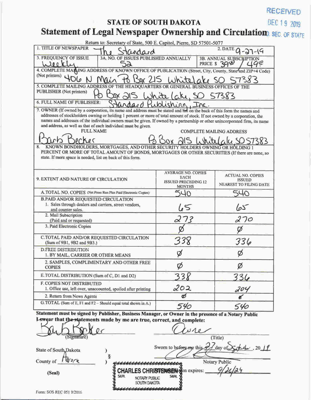 RECEIVED
DEC 19 2019
SEC OF STATE
STATE OF SOUTH DAKOTA
Statement of Legal Newspaper Ownership and Circulation
Return to: Secretary of State, 500 E. Capitol, Pierre, SD 57501-5077
1. TITLE OF NEWSPAPER The Standard
2. DATE 9-27-19
3. FREQUENCY OF ISSUE
Weekly
3A. NO. OF ISSUES PUBLISHED ANNUALLY
52
3B. ANNUAL SUBSCRIPTION
PRICE $
4. COMPLETE MAILING ADDRESS OF KNOWN OFFICE OF PUBLICATION (Street, City, County, State and ZIP+4 Code)
(Not printers) 406 N Main Po Box 215 White Lake SD 57383
5. COMPLETE MAILING ADDRESS OF THE HEADQUARTERS OR GENERAL BUSINESS OFFICES OF THE
PUBLISHER (Not printers) Po Box 215 White Lake SD 57383
6. FULL NAME OF PUBLISHER: Standard Publishing, Inc.
7. OWNER (If owned by a corporation, its name and address must be stated and also on the back of this form the names and
addresses of stockholders owning or holding 1 percent or more of total amount of stock. If not owned by a corporation, the
names and addresses of the individual owners must be given. If owned by a partnership or other unincorporated firm, its name
and address, as well as that of each individual must be given.
FULL NAME
COMPLETE MAILING ADDRESS
Po Box 215 White Lake SD 57383
8. KNOWN BONDHOLDERS, MORTGAGEES, AND OTHER SECURITY HOLDERS OWNING OR HOLDING 1
PERCENT OR MORE OF TOTAL AMOUNT OF BONDS, MORTGAGES OR OTHER SECURITIES (If there are none, so
state. If more space is needed, list on back of this form.
9. EXTENT AND NATURE OF CIRCULATION
AVERAGE NO. COPIES
EACH
ISSUED PRECEDING 12
MONTHS
ACTUAL NO. COPIES
ISSUED
NEAREST TO FILING DATE
A. TOTAL NO. COPIES
540
540
B. PAID AND/OR REQUESTED CIRCULATION
1. Sales through dealers and carriers, street vendors,
and counter sales.
65
65
2. Mail Subscription
(Paid and or requested)
273
270
3. Paid Electronic Copies
Ø
Ø
C. TOTAL PAID AND/OR REQUESTED CIRCULATION
(Sum of 9B1, 9B2 and 9B3.)
338
336
D. FREE DISTRIBUTION
1. BY MAIL, CARRIER OR OTHER MEANS
Ø
Ø
2. SAMPLES, COMPLIMENTARY AND OTHER FREE
COPIES
Ø
Ø
E. TOTAL DISTRIBUTION (Sum of C, D1 and D2)
338
336
F. COPIES NOT DISTRIBUTED
1. Office use, left over, unaccounted, spoiled after printing
202
204
2. Return from News Agents
Ø
Ø
G. TOTAL (Sum of E, F1 and F2 - Should equal total shown in A.)
540
540
Statement must be signed by Publisher, Business Manager, or Owner in the presence of a Notary Public
I swear that the statements made by me are true, correct, and complete:
Owner
(Signature)
(Title)
State of South Dakota )
County of )
(Seal)
Sworn to before me this 27 day of 2019
Notary Public
CHARLES CHRISTENSEN
NOTARY PUBLIC
SOUTH DAKOTA
SEAL
SEAL
expires:
Form: SOS REC 051 9/2016